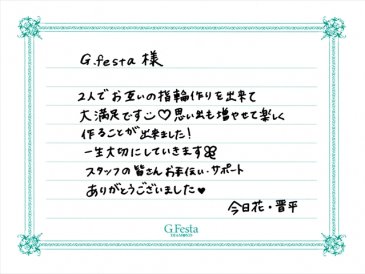 G.festa 様
2人でお互いの指輪作りを出来て
大満足です♡思い出も増やせて楽しく
作ることが出来ました!
一生大切にしていきます
スタッフの皆さんお手伝い・サポート
ありがとうございました♥
今日花・晋平
G.Festa
DIAMOND